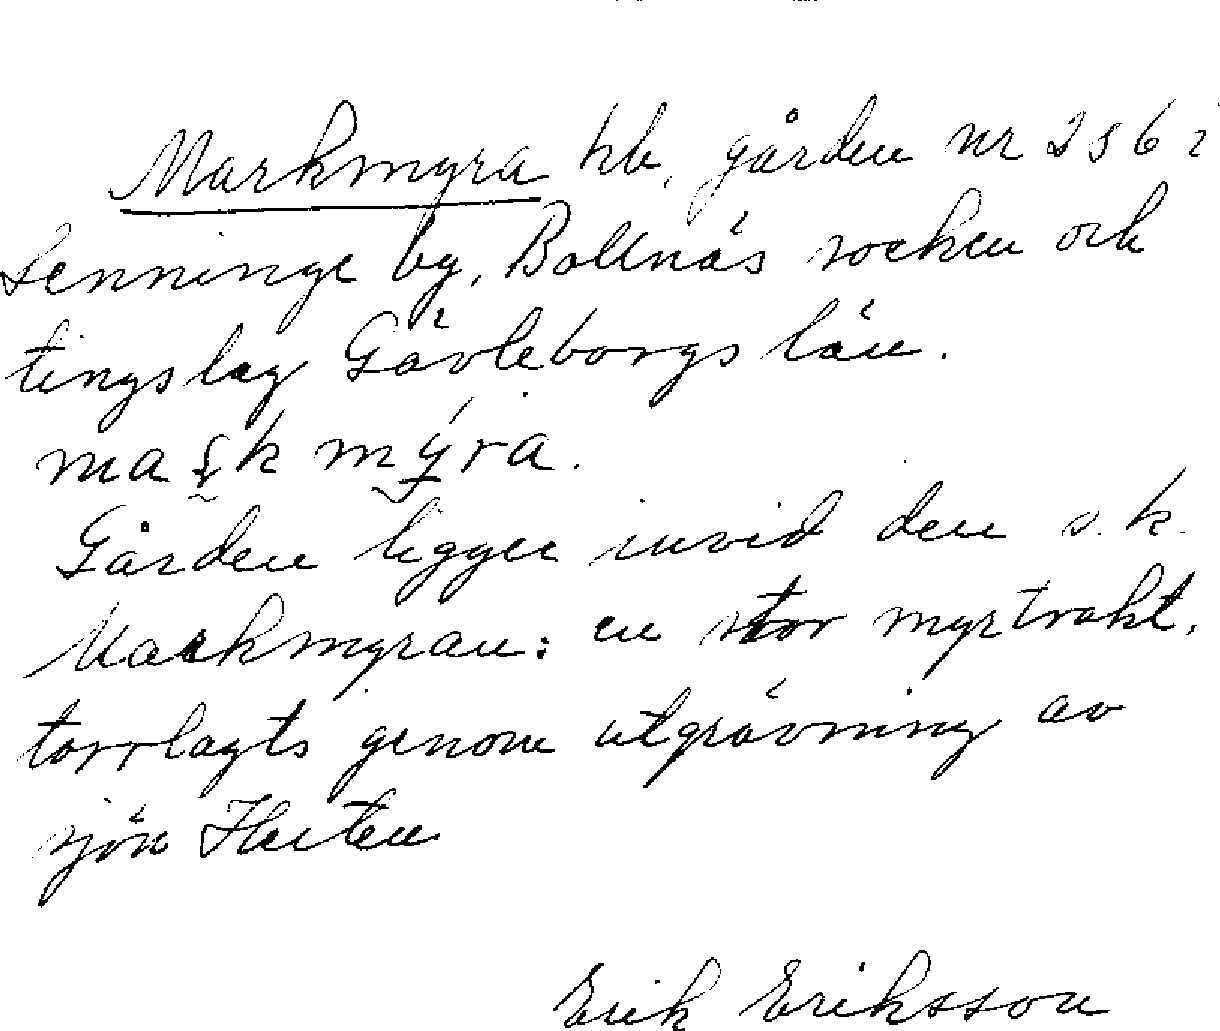 Markmyra hb, gården nr 2 s 6 i
Lenninge by, Bollnäs socken och
tingslag Gävleborgs län.
mark mýra.
Gården ligger invid den s.k.
Markmyran: en stor myrtrakt,
torrlagts genom utgrävning av
sjön
Erik Eriksson